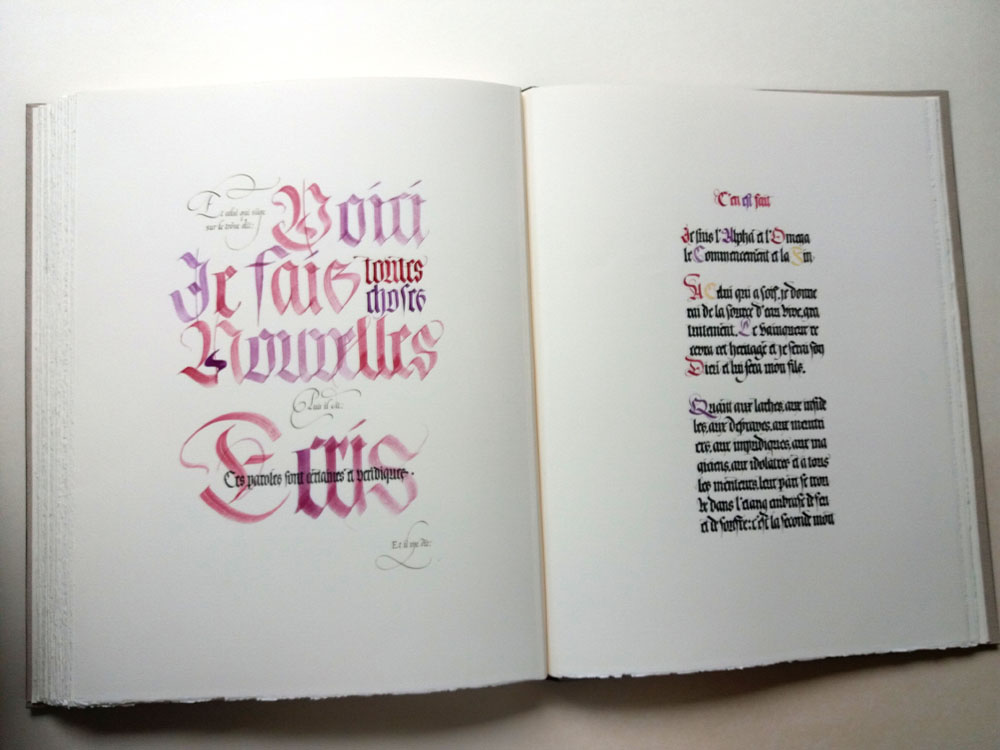 Et celui qui siège
sur le trône dit:
Voici
Je fais toutes
choses
Nouvelles
Puis il dit:
Ecris
Ces paroles sont certaines et veridiques.
Et il me dit:
C'en est fait
Je suis l'Alpha et l'Omega
le Commencement et la Fin.
A Celui qui a soif, je donne
rai de la source d'eau vive, gra
tuitement. Le vainqueur re
cevra cet heritage et je serai son
Dieu et lui sera mon fils.
Quant aux laches, aux infide
les, aux depraves, aux meurtri
ers, aux impudiques, aux ma
giciens, aux idolatres et a tous
les menteurs, leur part se trou
ve dans l'etang embrase de feu
et de souffre: c'est la seconde mort